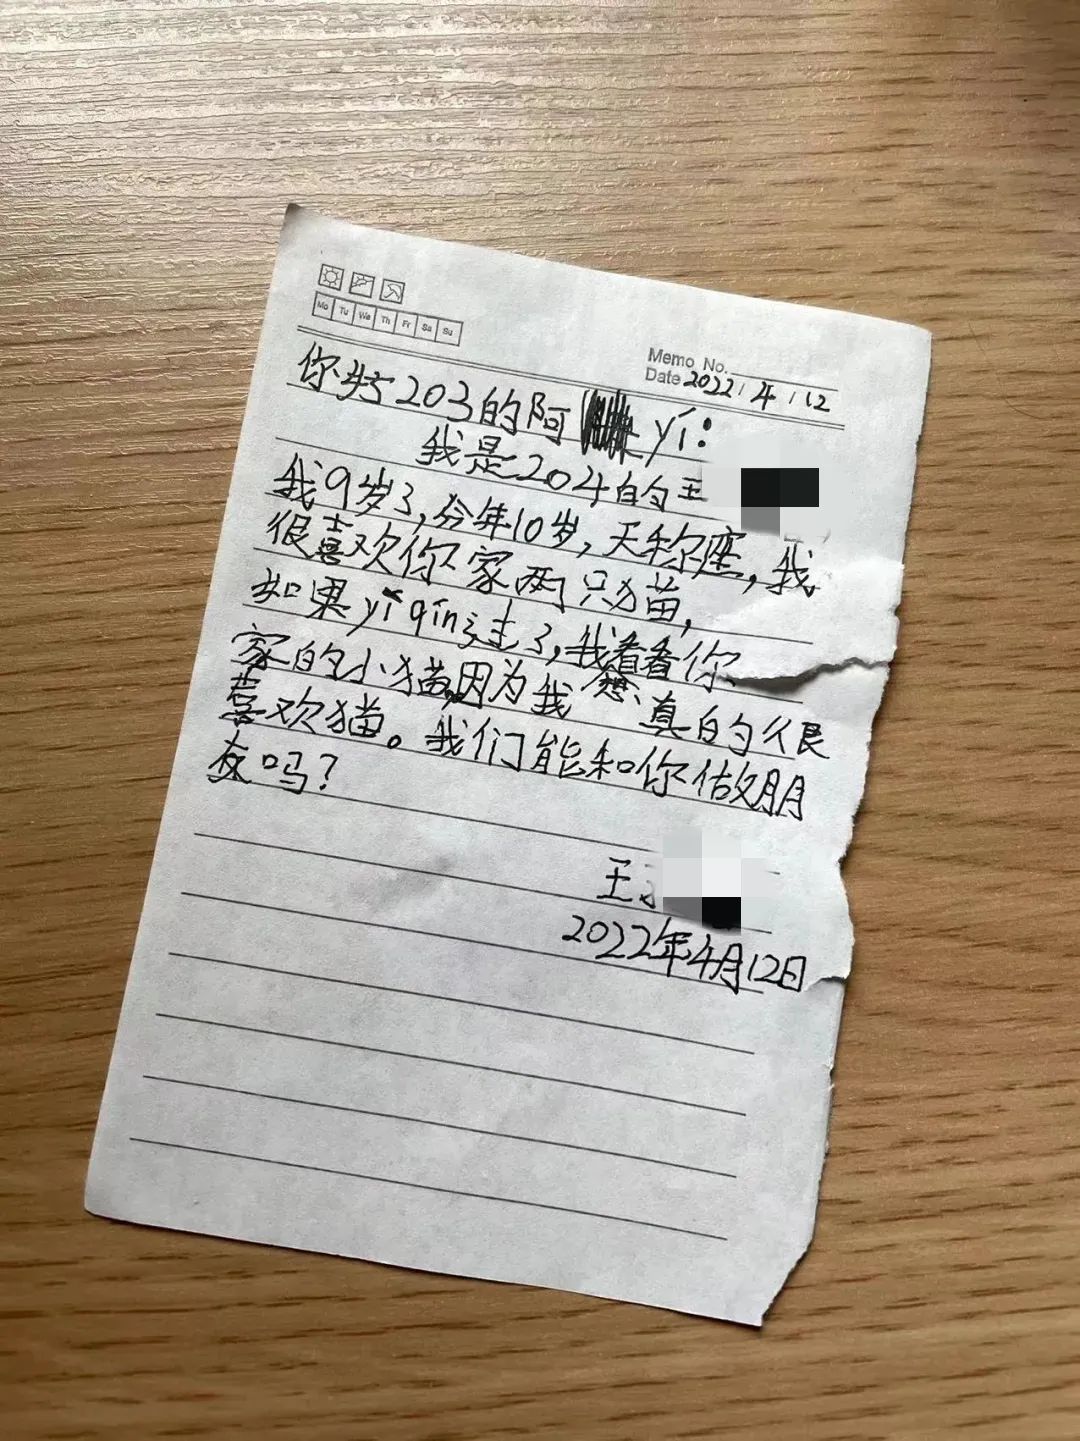 Mo Tu We Th Fr Sa Su
Memo No.
Date 2022/4/12
你好203的阿 yí：
我是204的王
我9岁了,今年10岁,天秤座,我
很喜欢你家两只猫,
如果yì qíng走了,我看看你
想
家的小猫,因为我真的很
喜欢猫。我们能和你做朋
友吗?
王
2022年4月12日